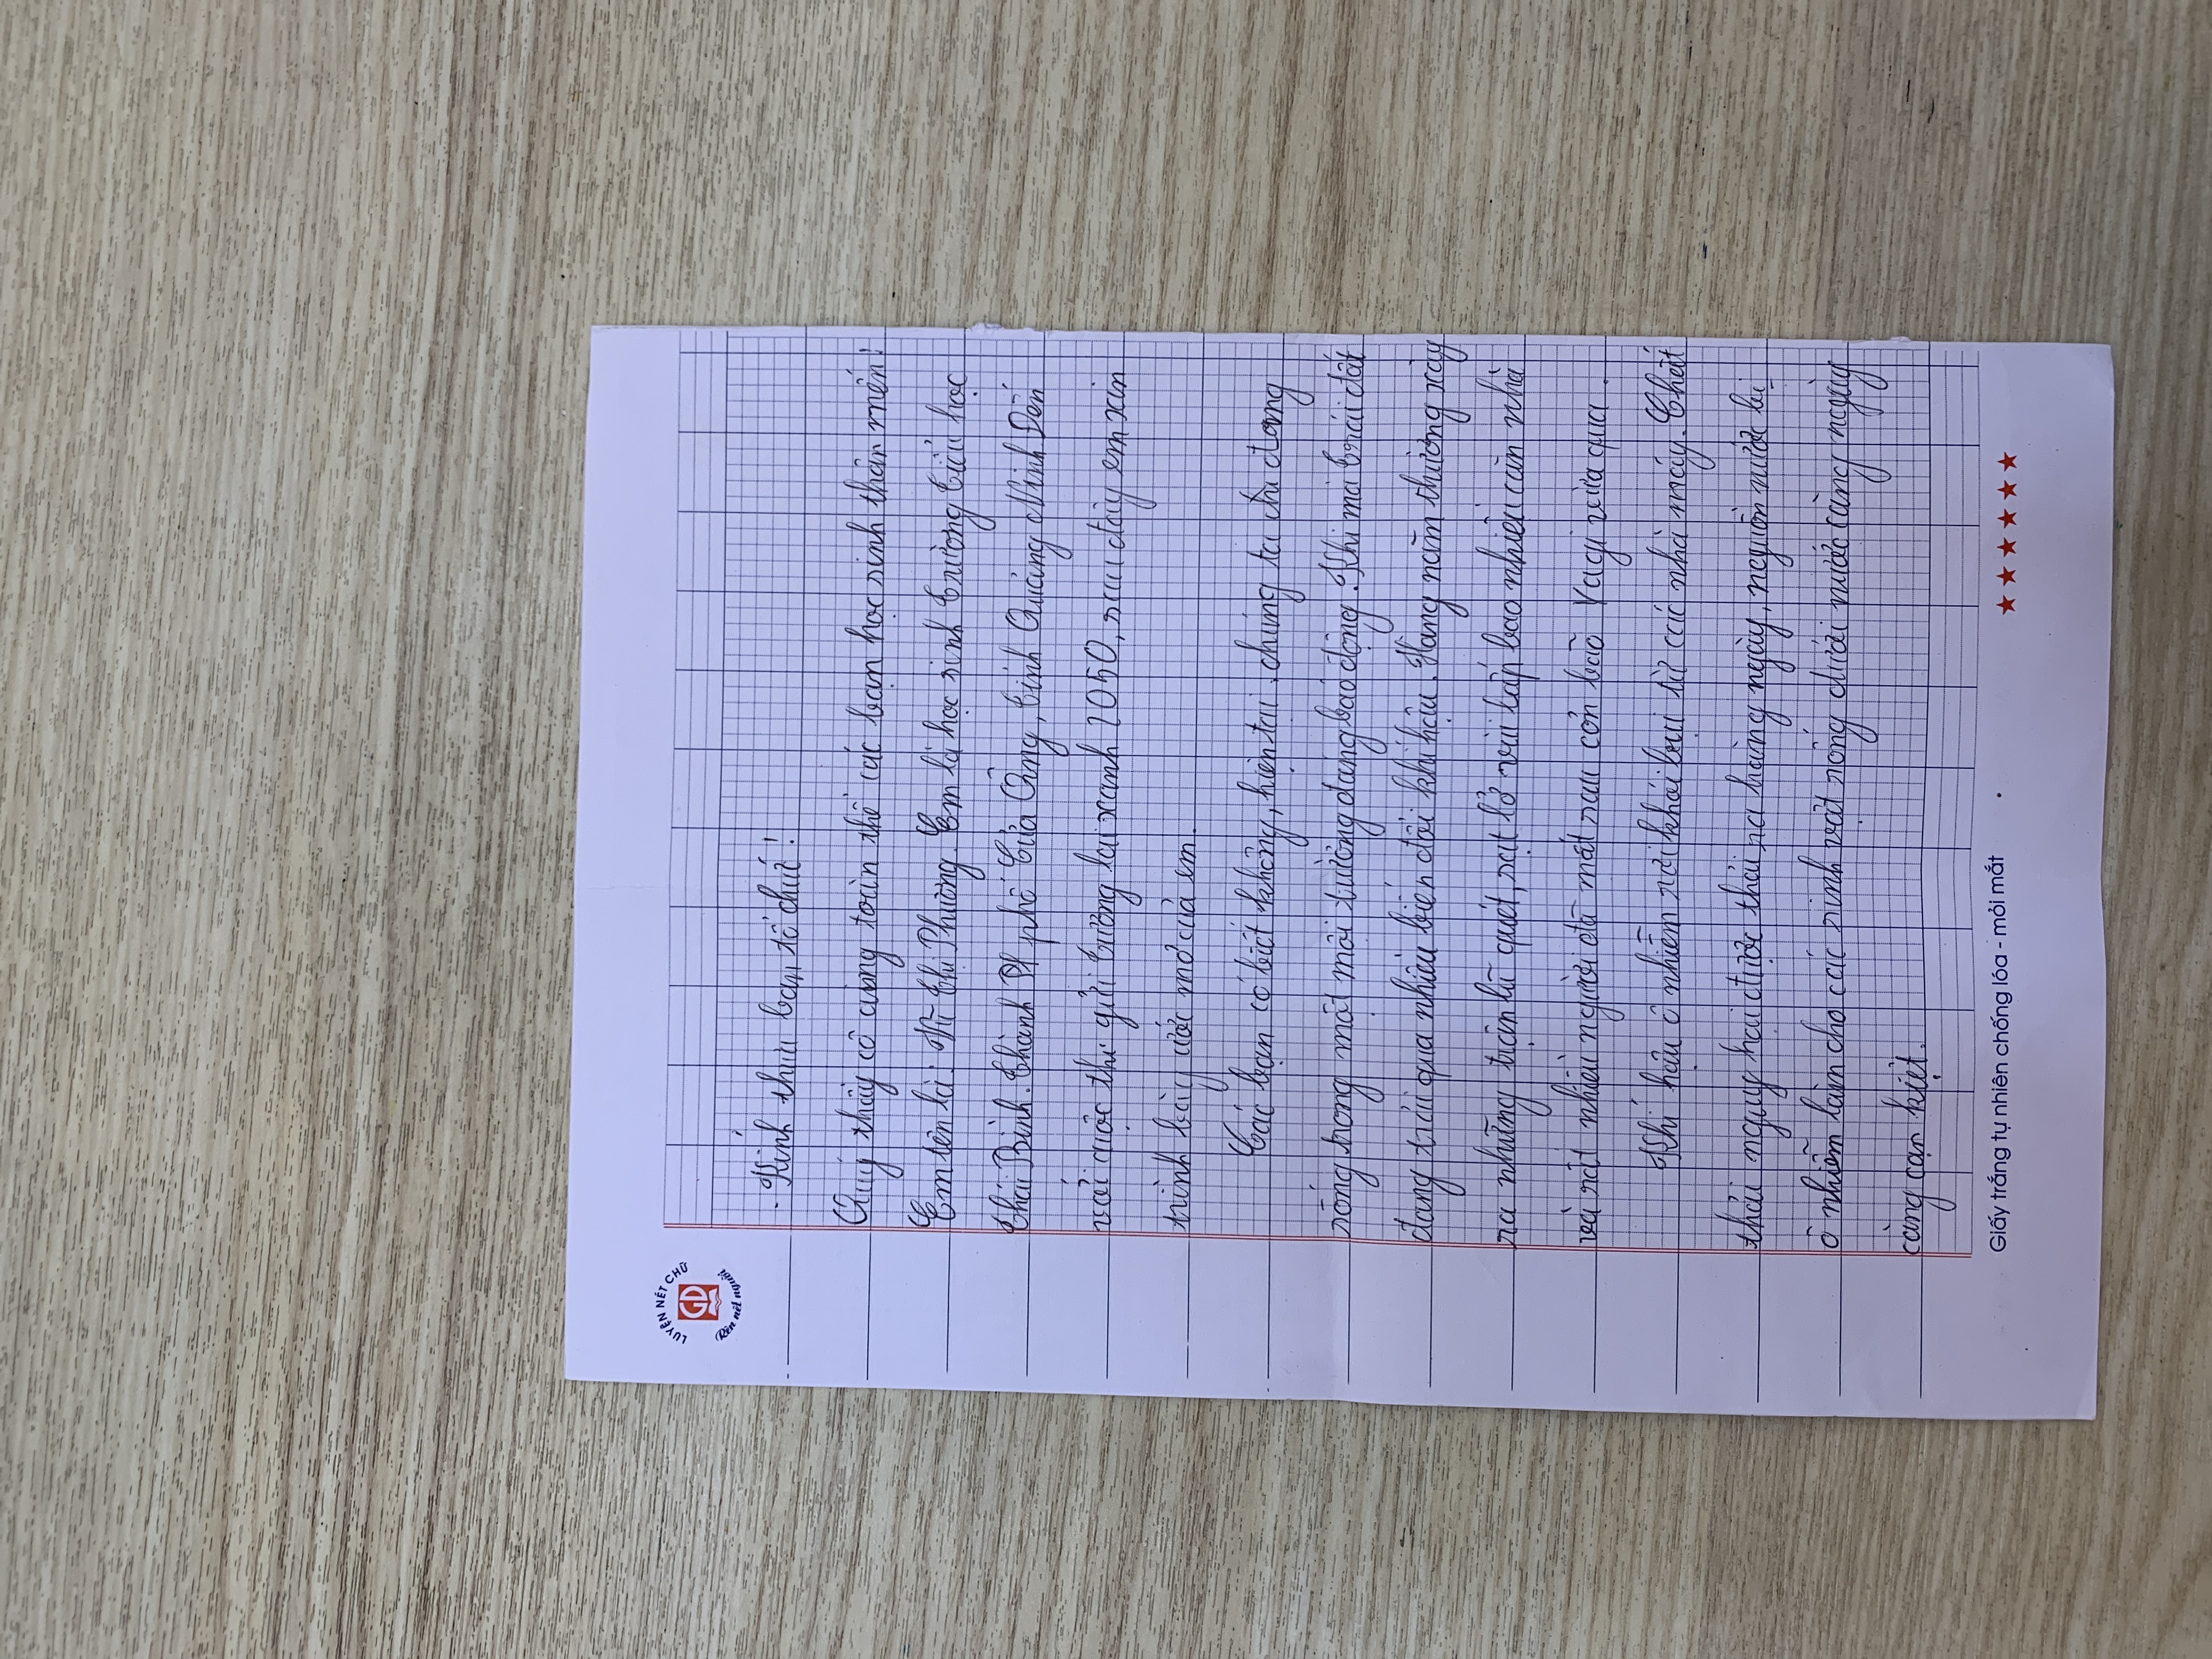 LUYỆN NÉT CHỮ
GD
Rèn nết người
- Kính thưa ban tổ chức!
Quý thầy cô cùng toàn thể các bạn học sinh thân mến!
Em tên là: Vũ Thị Phường. Em là học sinh trường tiểu học
Thái Bình. Thành Ph phố Cửa Ông, tỉnh Quảng Ninh Đến
với cuộc thi gửi tương lai xanh 2050, sau đây em xin
trình bày ước mơ của em.
Các bạn có biết không, hiện tại chúng ta đã đang
sống trong một môi trường đáng báo động. Khi mà trái đất
đang trải qua nhiều biến đổi khí hậu. Hàng năm thường xảy
ra những trận lũ quét, sạt lở vùi lấp bao nhiêu căn nhà
và rất nhiều người đã mất sau cơn bão Yagi vừa qua.
Khí hậu ô nhiễm với khói bụi từ các nhà máy. Chất
thải nguy hại được thải ra hàng ngày, nguồn nước bị
ô nhiễm làm cho các sinh vật sống dưới nước càng ngày
càng cạn kiệt.
Giấy trắng tự nhiên chống lóa - mỏi mắt